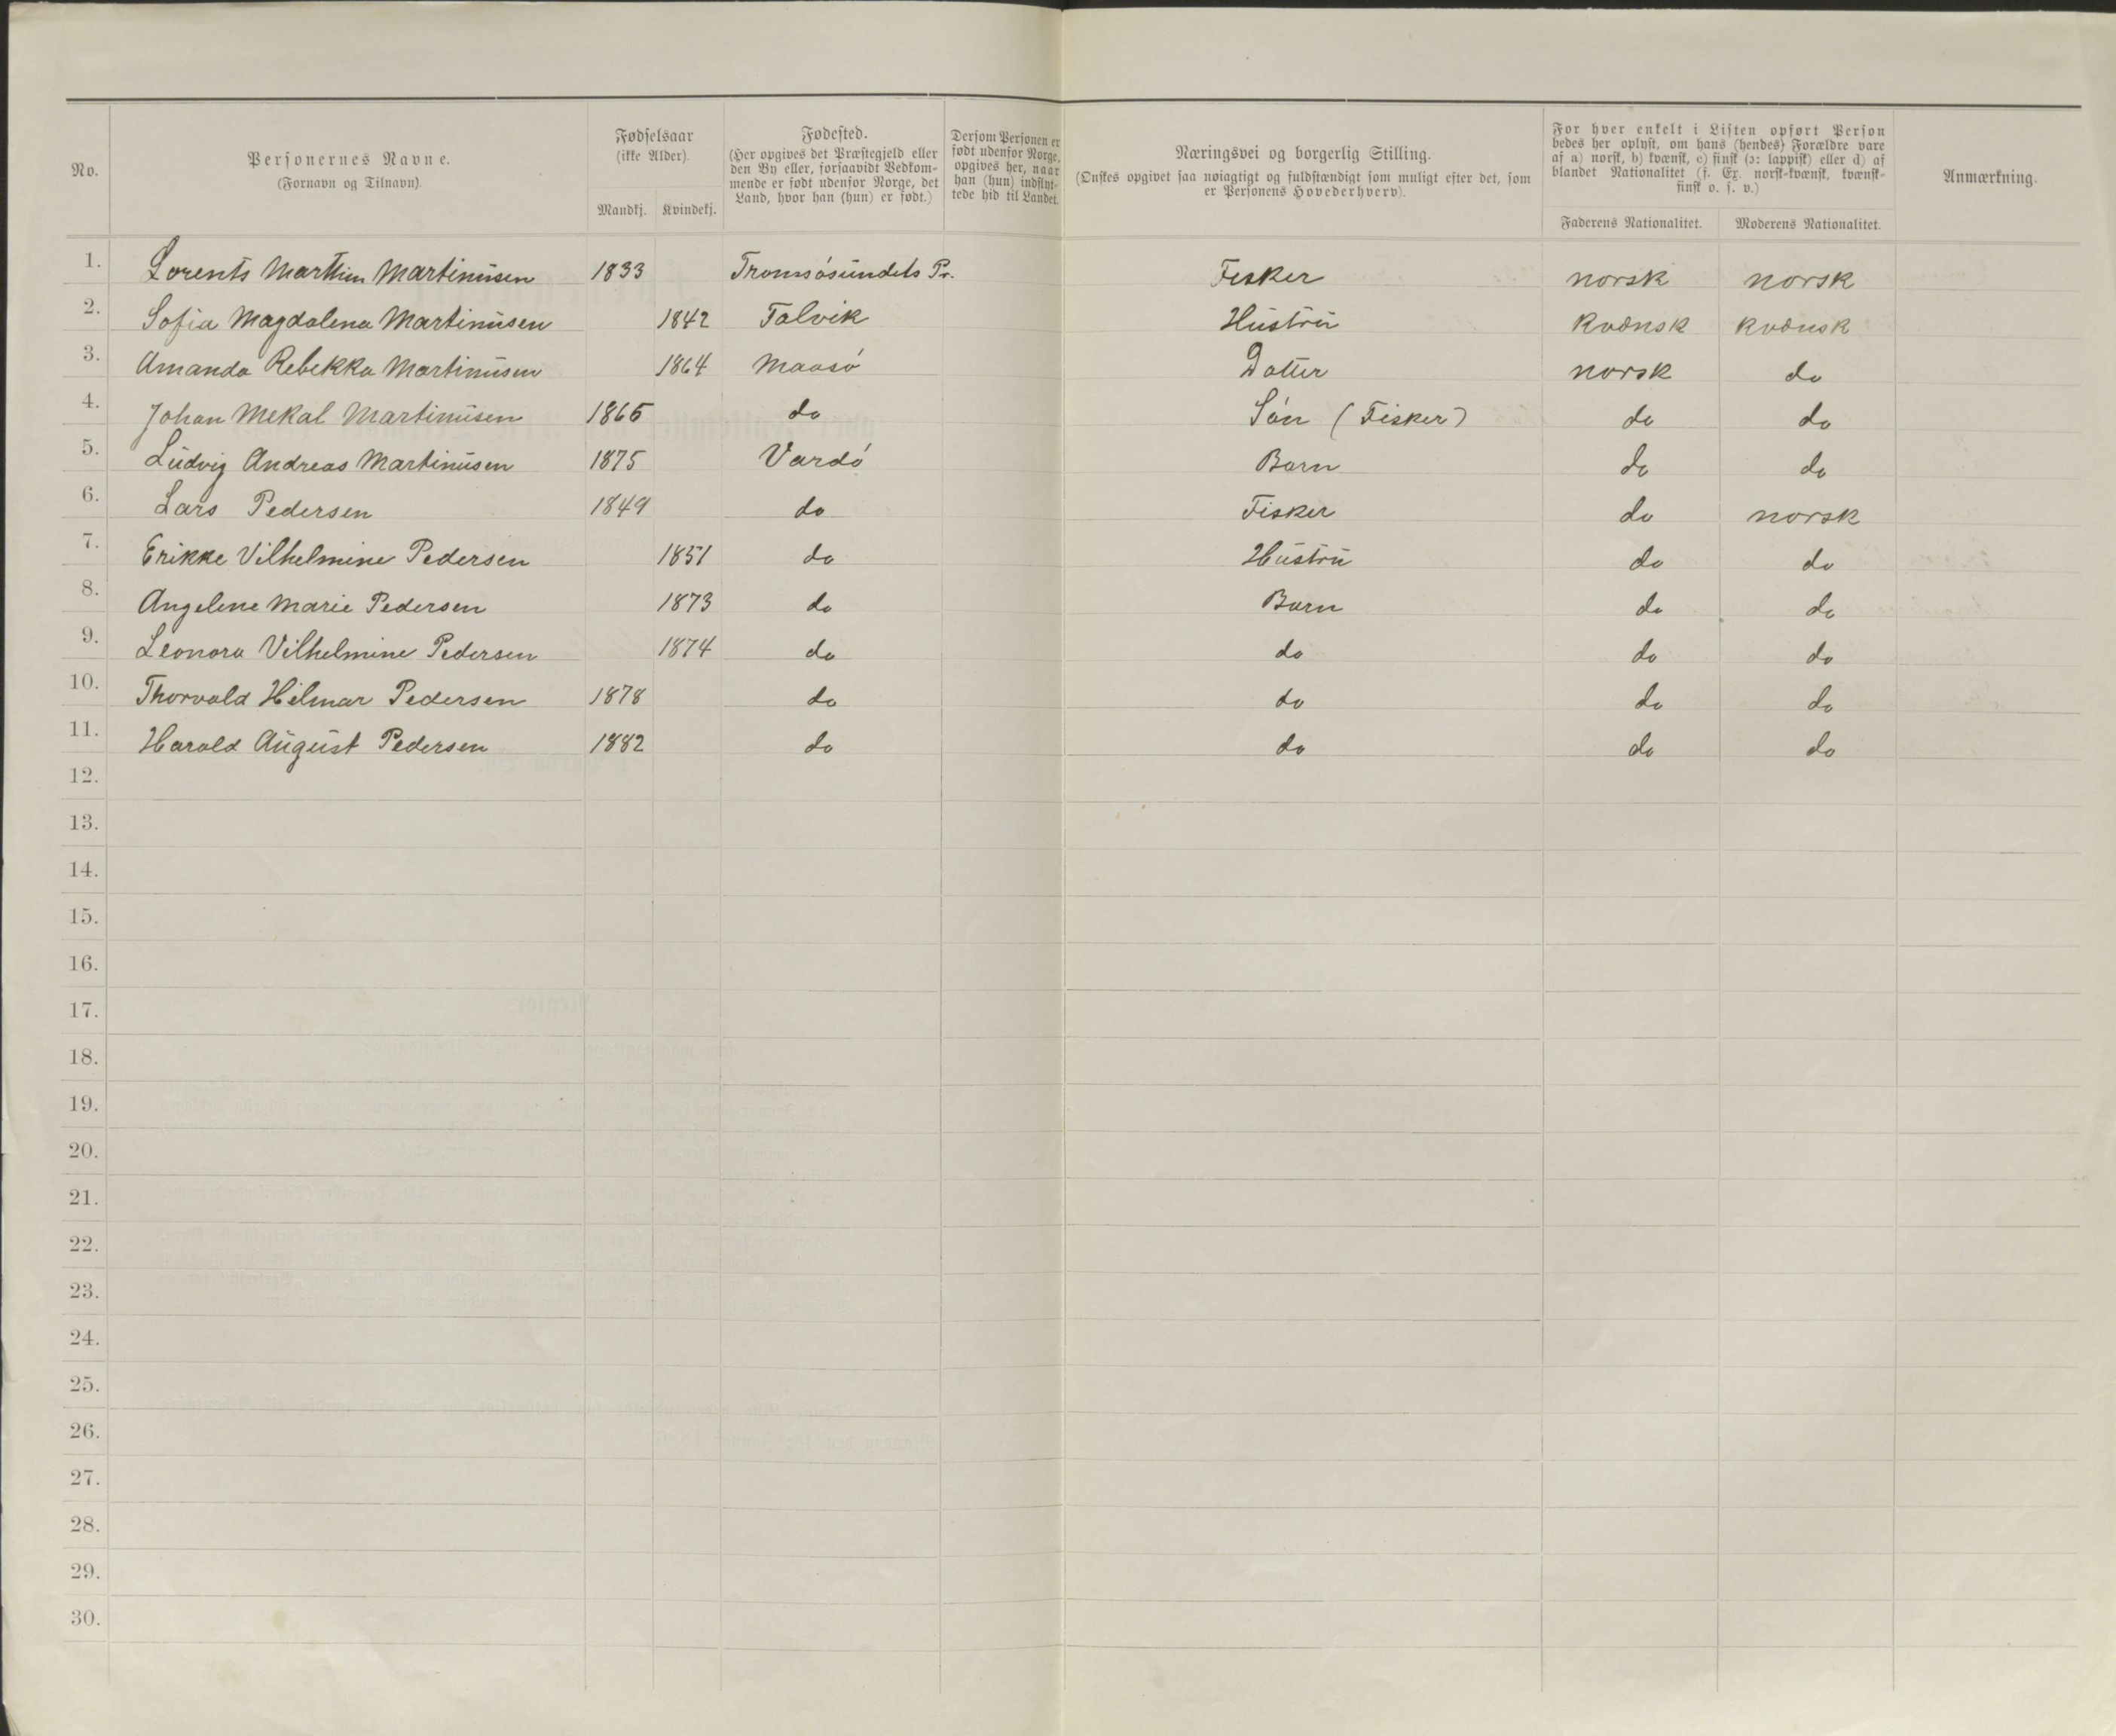 No.
Personernes Navne.
(Fornavn og Tilnavn).
Fødselsaar
(ikke Alder).
Mandkj. Kvindekj.
Fødested.
(Her opgives det Præstegjeld eller
den By eller, forsaavidt Vedkom-
mende er født udenfor Norge, det
Land, hvor han (hun) er født.)
Dersom Personen er
født udenfor Norge,
opgives her, naar
han (hun) indflyt-
tede hid til Landet.
Næringsvei og borgerlig Stilling.
(Ønskes opgivet saa nøiagtigt og fuldstændigt som muligt efter det, som
er Personens Hovederhverv).
For hver enkelt i Listen opført Person
bedes her oplyst, om hans (hendes) Forældre vare
af a) norsk, b) kvænsk, c) finsk (ɔ: lappisk) eller d) af
blandet Nationalitet (f. Ex. norsk-kvænsk, kvænsk-
finsk o. s. v.)
Faderens Nationalitet. Moderens Nationalitet.
Anmærkning.
1. Lorents Marthin Martinusen 1833 Tromsøsundets Pr. Fisker norsk norsk
2. Sofia Magdalena Martinusen 1842 Talvik Hustru Kvænsk Kvænsk
3. Amanda Rebekka Martinusen 1864 Maasø Datter norsk do
4. Johan Mekal Martinusen 1865 do Søn (Fisker) do do
5. Ludvig Andreas Martinusen 1875 Vardø Barn do do
6. Lars Pedersen 1849 do Fisker do norsk
7. Erikke Vilhelmine Pedersen 1851 do Hustru do do
8. Angelene Marie Pedersen 1873 do Barn do do
9. Leonora Vilhelmine Pedersen 1874 do do do do
10. Thorvald Hilmar Pedersen 1878 do do do do
11. Harald August Pedersen 1882 do do do do
12.
13.
14.
15.
16.
17.
18.
19.
20.
21.
22.
23.
24.
25.
26.
27.
28.
29.
30.